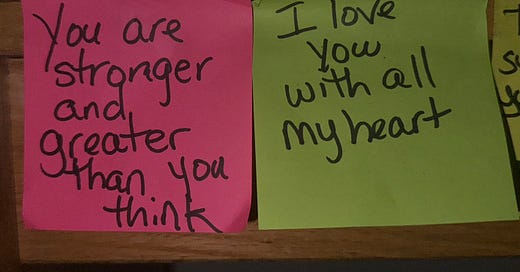 You are
stronger
and
greater
than you
think
I love
you
with all
my heart